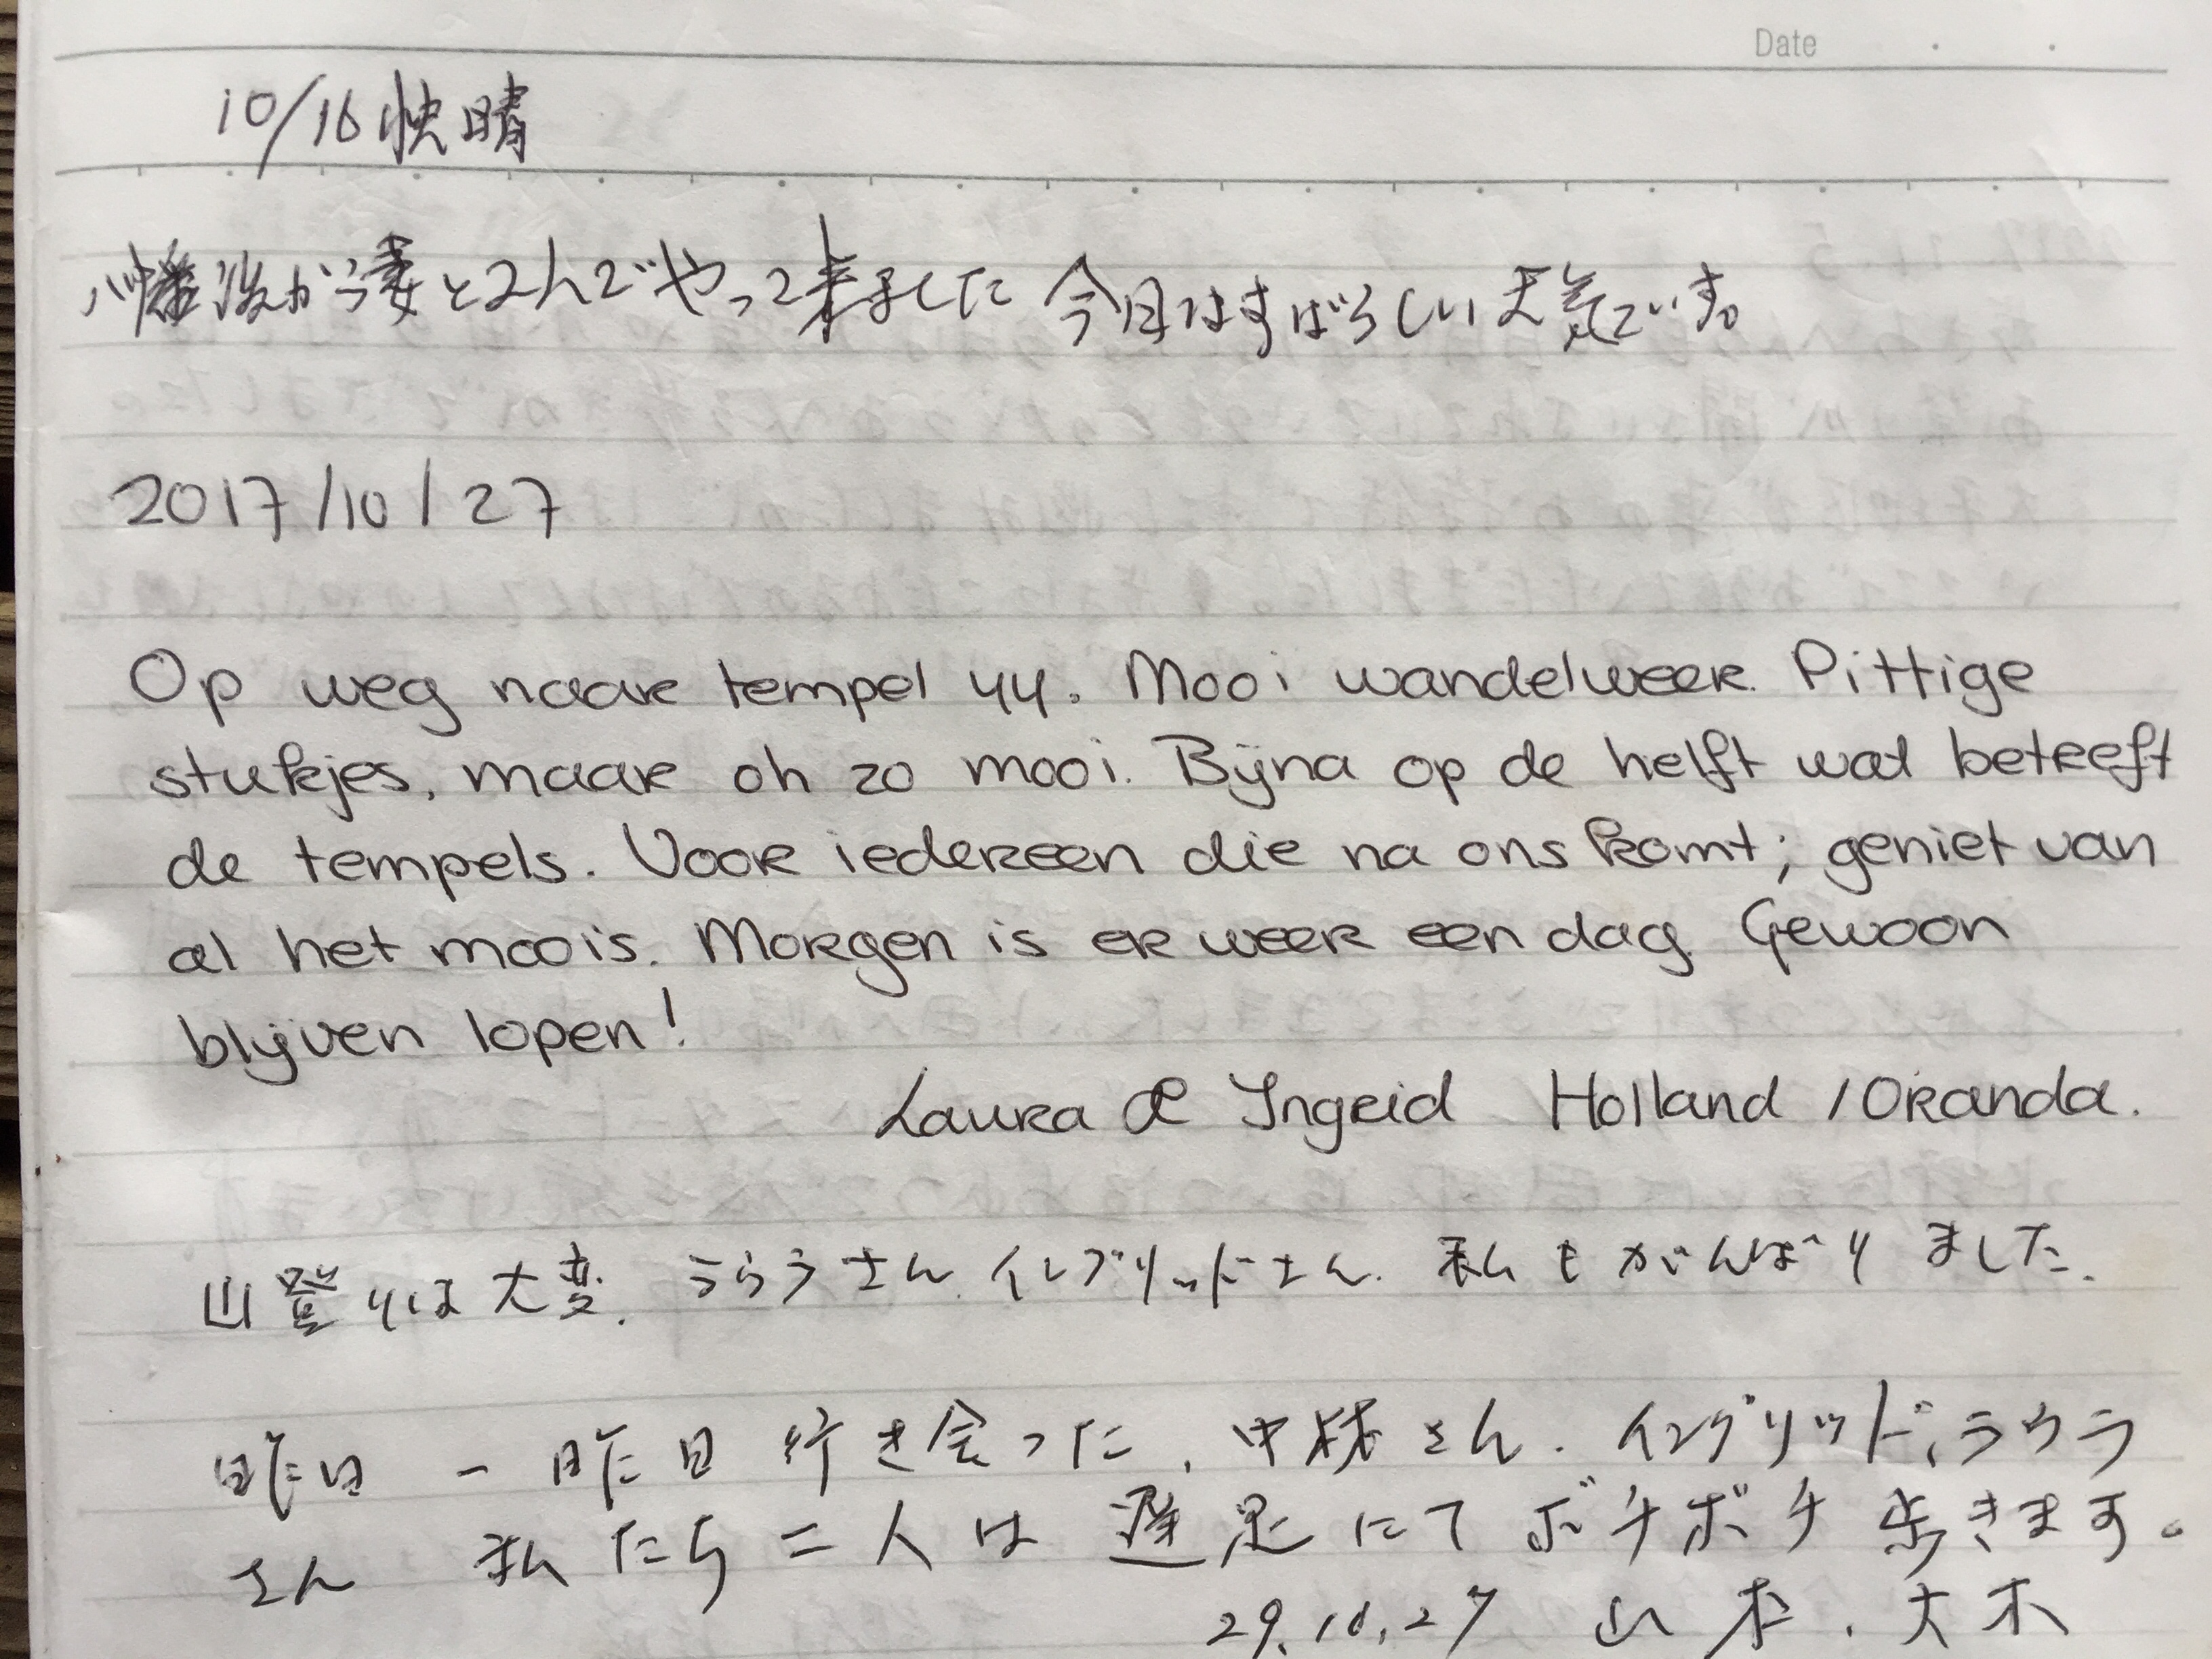 Date
10/16 快晴
難波から妻と2人でやって来ました 今日はすばらしい天気でいます。
2017/10/27
Op weg naar tempel 44. Mooi wandelweer. Pittige
stukjes, maar oh zo mooi. Bijna op de helft wat betreft
de tempels. Voor iedereen die na ons komt; geniet van
al het moois. Morgen is er weer een dag. Gewoon
blijven lopen!
Laura & Ingrid Holland / Oranda.
山登りは大変. うらうさん イングリッドさん. 私もがんばりました.
昨日 一昨日 行き会った、中林さん. イングリッド、ラウラ
さん 私たち二人は遅足にてボチボチ歩きます。
29.10.27 山本. 大木